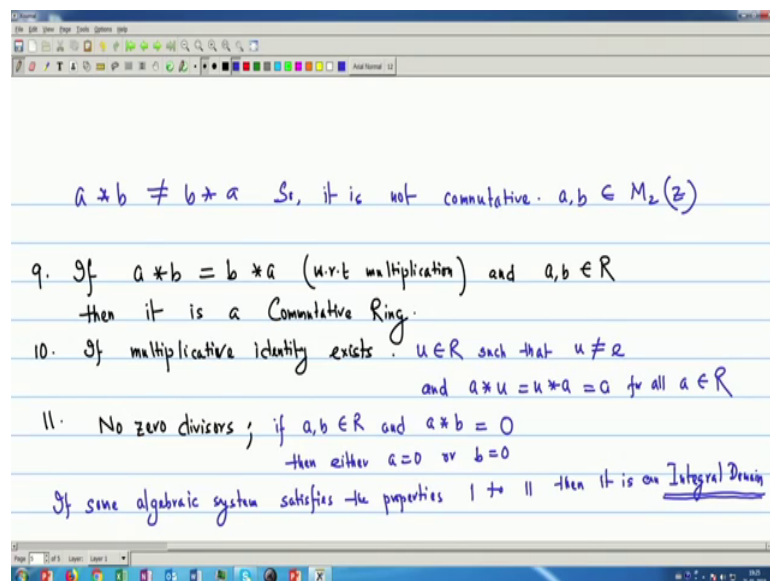 Journal
File Edit View Page Tools Options Help
Arial Normal 12
a * b ≠ b * a So, it is not commutative. a, b ∈ M₂(Z)
9. If a * b = b * a (w.r.t multiplication) and a, b ∈ R
then it is a Commutative Ring.
10. If multiplicative identity exists. u ∈ R such that u ≠ e
and a * u = u * a = a for all a ∈ R
11. No zero divisors; if a, b ∈ R and a * b = 0
then either a = 0 or b = 0
If some algebraic system satisfies the properties 1 to 11 then it is an Integral Domain
Page 5 of 5 Layer: Layer 1